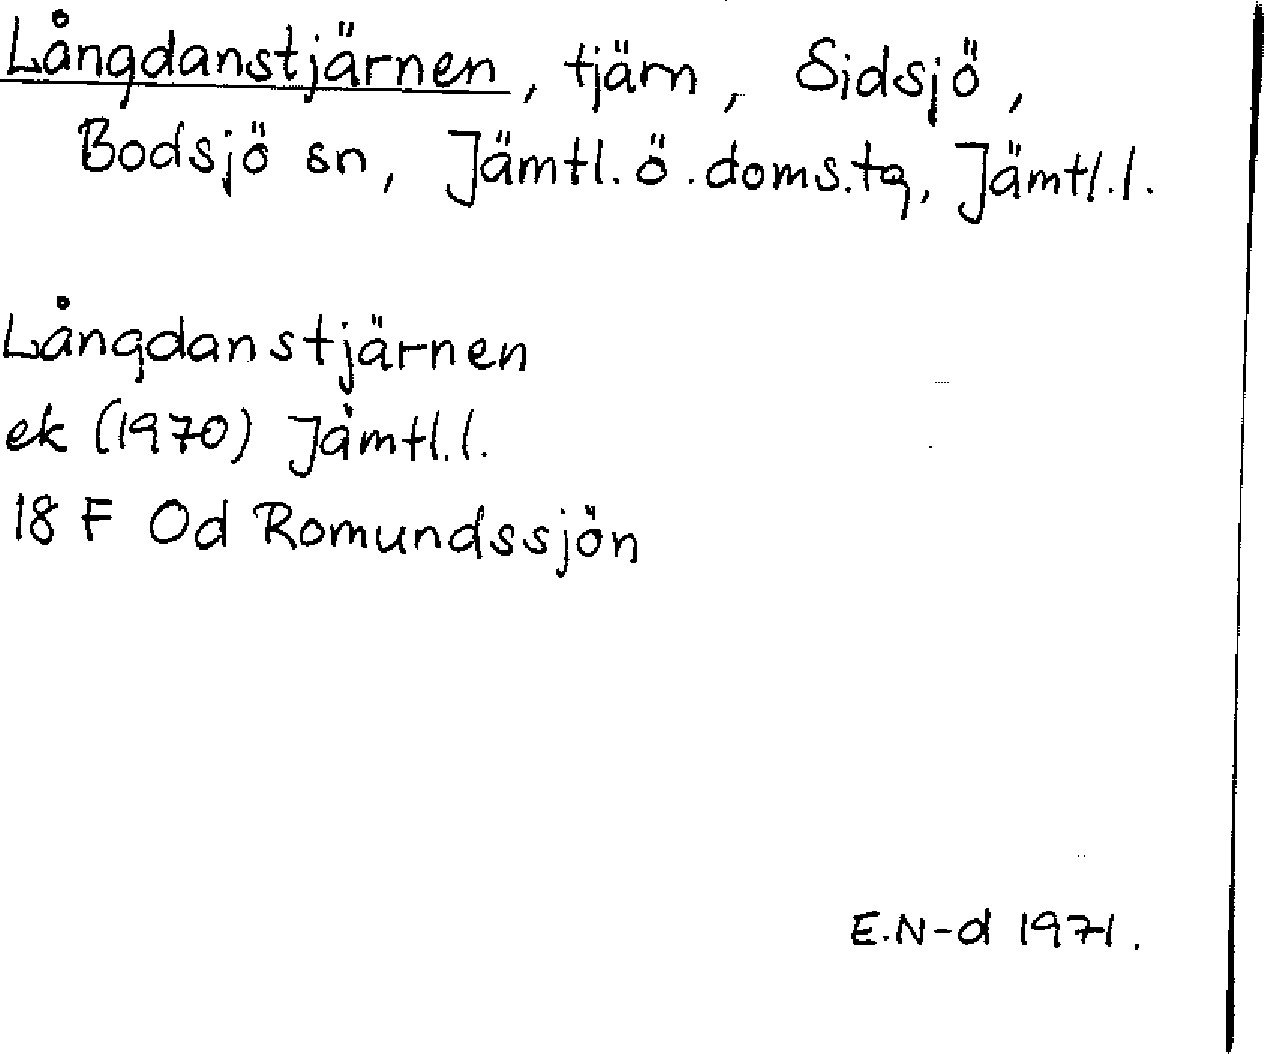 Långdanstjärnen, tjärn, Sidsjö,
Bodsjö sn, Jämtl. ö. doms.tg, Jämtl.l.
Långdanstjärnen
ek (1970) Jämtl.l.
18 F Od Romundssjön
E.N-d 1971.